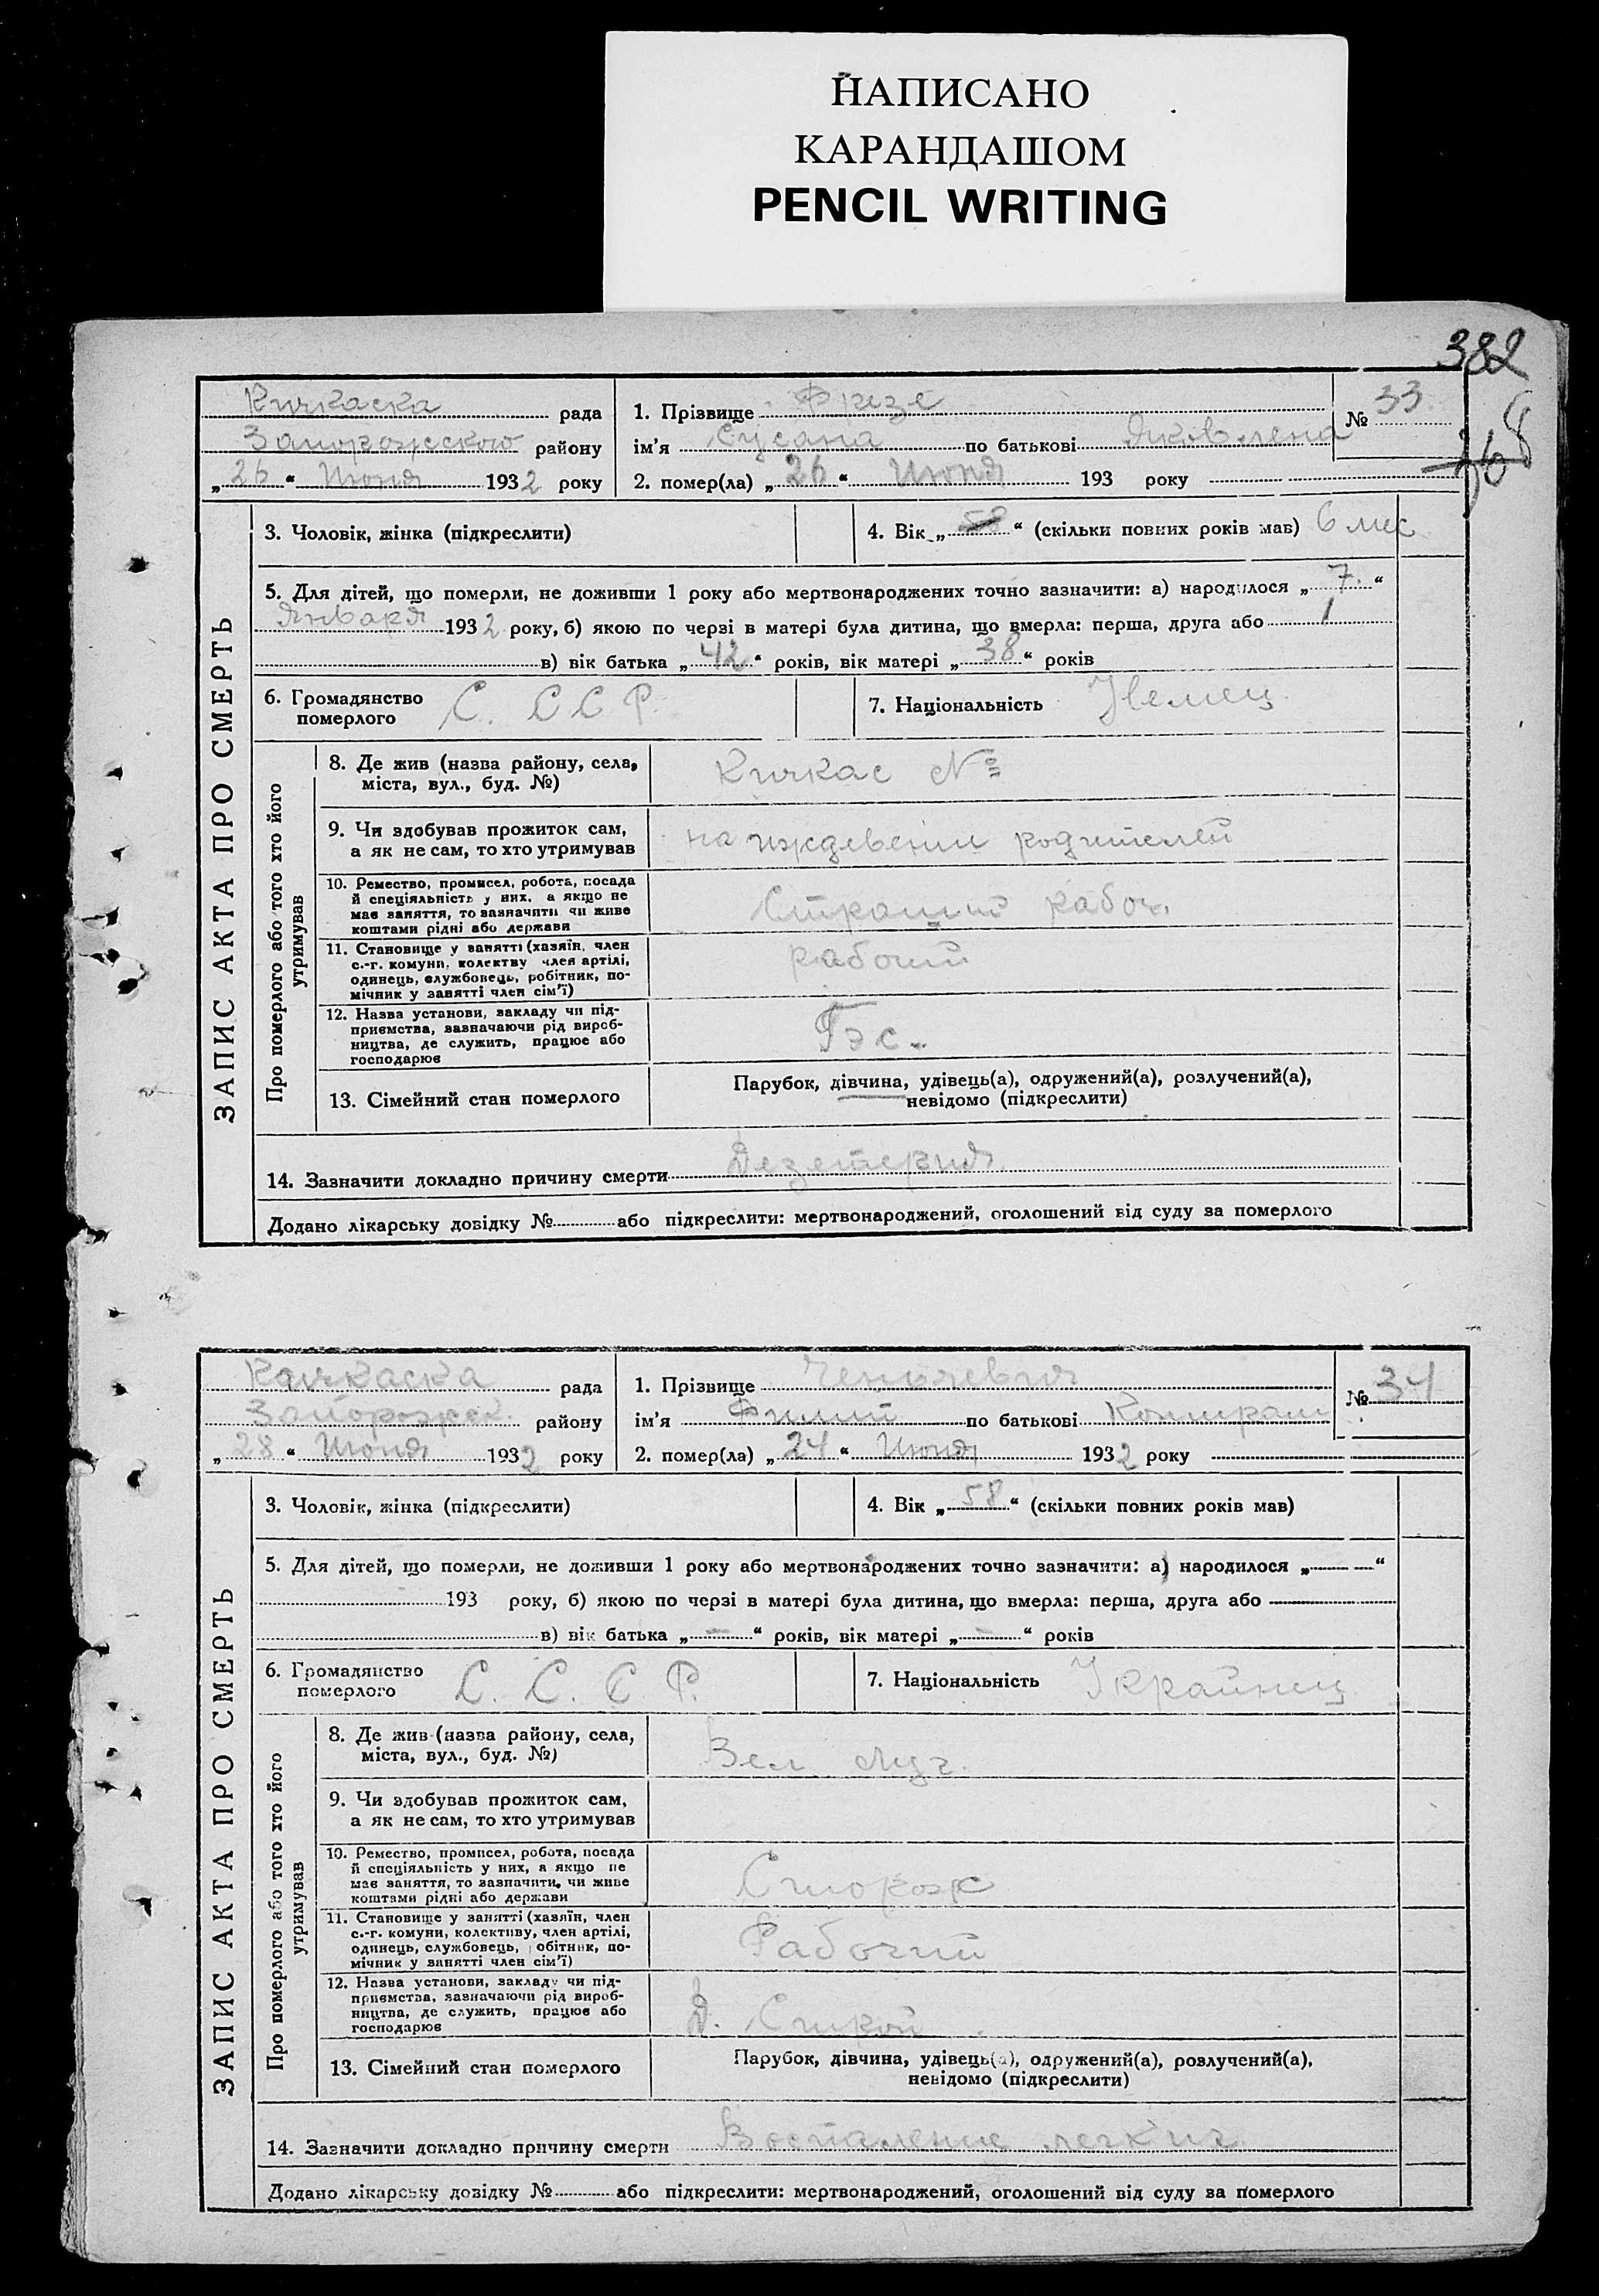 НАПИСАНО
КАРАНДАШОМ
PENCIL WRITING
382
Кичкаска рада
Запорожского району
„ 26 “ Июня 1932 року
1. Прізвище Фризе
ім’я Сусана по батькові Яковлена
2. помер(ла) „ 26 “ Июня 193 року
№ 33
168
ЗАПИС АКТА ПРО СМЕРТЬ
3. Чоловік, жінка (підкреслити)
4. Вік „ 58 “ (скільки повних років мав) 6 мес
5. Для дітей, що померли, не доживши 1 року або мертвонароджених точно зазначити: а) народилося „ 7. “
Января 1932 року, б) якою по черзі в матері була дитина, що вмерла: перша, друга або 1
в) вік батька „ 42 “ років, вік матері „ 38 “ років
6. Громадянство
померлого С. ССР.
7. Національність Немец
Про померлого або того хто його
утримував
8. Де жив (назва району, села,
міста, вул., буд. №)
Кичкас №
9. Чи здобував прожиток сам,
а як не сам, то хто утримував
на иждевении родителей
10. Ремество, промисел, робота, посада
й спеціяльність у них, а якщо не
має заняття, то зазначити чи живе
коштами рідні або держави
рабоч.
11. Становище у занятті (хазяїн, член
с.-г. комуни, колективу член артілі,
одинець, службовець, робітник, по-
мічник у занятті член сім’ї)
рабочий
12. Назва установи, закладу чи під-
приємства, зазначаючи рід вироб-
ництва, де служить, працює або
господарює
Гэс.
13. Сімейний стан померлого
Парубок, дівчина, удівець(а), одружений(а), розлучений(а),
невідомо (підкреслити)
14. Зазначити докладно причину смерти Дезетерия
Додано лікарську довідку № або підкреслити: мертвонароджений, оголошений від суду за померлого
Качкаска рада
Запорожск. району
„ 28 “ Июня 1932 року
1. Прізвище
ім’я Филип по батькові
2. помер(ла) „ 24 “ Июня 1932 року
№ 34
ЗАПИС АКТА ПРО СМЕРТЬ
3. Чоловік, жінка (підкреслити)
4. Вік „ 58 “ (скільки повних років мав)
5. Для дітей, що померли, не доживши 1 року або мертвонароджених точно зазначити: а) народилося „ “
193 року, б) якою по черзі в матері була дитина, що вмерла: перша, друга або
в) вік батька „ – “ років, вік матері „ – “ років
6. Громадянство
померлого С. С. С. Р.
7. Національність Украйнец
Про померлого або того хто його
утримував
8. Де жив (назва району, села,
міста, вул., буд. №)
Вел. Луг.
9. Чи здобував прожиток сам,
а як не сам, то хто утримував
10. Ремество, промисел, робота, посада
й спеціяльність у них, а якщо не
має заняття, то зазначити, чи живе
коштами рідні або держави
Сторож
11. Становище у занятті (хазяїн, член
с.-г. комуни, колективу, член артілі,
одинець, службовець, робітник, по-
мічник у занятті член сім’ї)
Рабочий
12. Назва установи, закладу чи під-
приємства, зазначаючи рід вироб-
ництва, де служить, працює або
господарює
Д. Строй
13. Сімейний стан померлого
Парубок, дівчина, удівець(а), одружений(а), розлучений(а),
невідомо (підкреслити)
14. Зазначити докладно причину смерти Воспаление легких
Додано лікарську довідку № або підкреслити: мертвонароджений, оголошений від суду за померлого